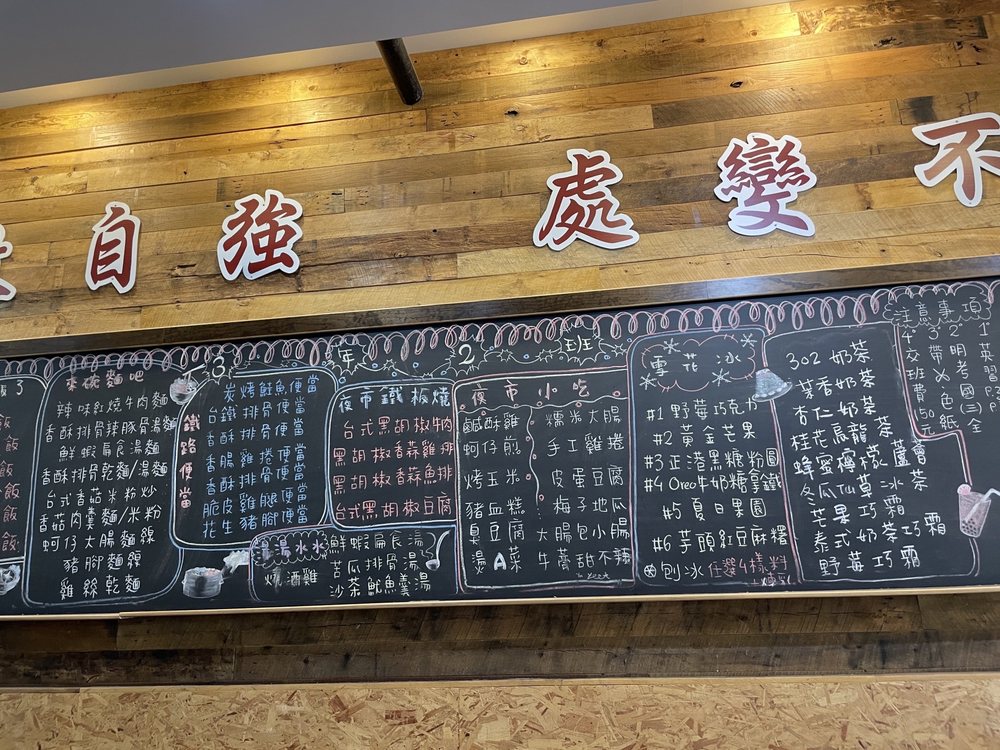 自 強 處 變 不
3 年 2 班
飯了
飯
飯
飯
飯
飯
飯
來碗麵吧
辣味紅燒牛肉麵
香酥排骨辣豚骨湯麵
鮮蝦扁食湯麵
香酥排骨乾麵/湯麵
台式香菇米粉炒
香菇肉羹麵/米粉
蚵仔大腸麵線
豬腳麵線
雞絲乾麵
鐵路便當
炭烤鮭魚便當
台鐵排骨便當
香酥排骨便當
香腸雞捲便當
香酥雞腿便當
花生豬腳便當
夜市鐵板燒
台式黑胡椒牛肉
黑胡椒香蒜雞排
黑胡椒香蒜魚排
台式黑胡椒豆腐
湯湯水水
燒酒雞
鮮蝦扁食湯
苦瓜排骨湯
沙茶魷魚羹湯
夜市小吃
鹹酥雞
蚵仔煎
烤玉米
豬血糕
臭豆腐
燙A菜
糯米大腸
手工雞捲
皮蛋豆腐
梅子地瓜
大腸包小腸
牛蒡甜不辣
雪花冰
#1 野莓巧克力
#2 黃金芒果
#3 正港黑糖粉圓
#4 Oreo牛奶糖拿鐵
#5 夏日果園
#6 芋頭紅豆麻糬
刨冰 任選4樣料
302 奶茶
茉香奶茶
杏仁奶茶
桂花烏龍茶
蜂蜜檸檬蘆薈
冬瓜Tw草茶
芒果巧冰
泰式奶茶巧霜
野莓巧霜
注意事項
1 英習 P.3
2 明老國(三)全
3 帶X色紙
4 交班費150元